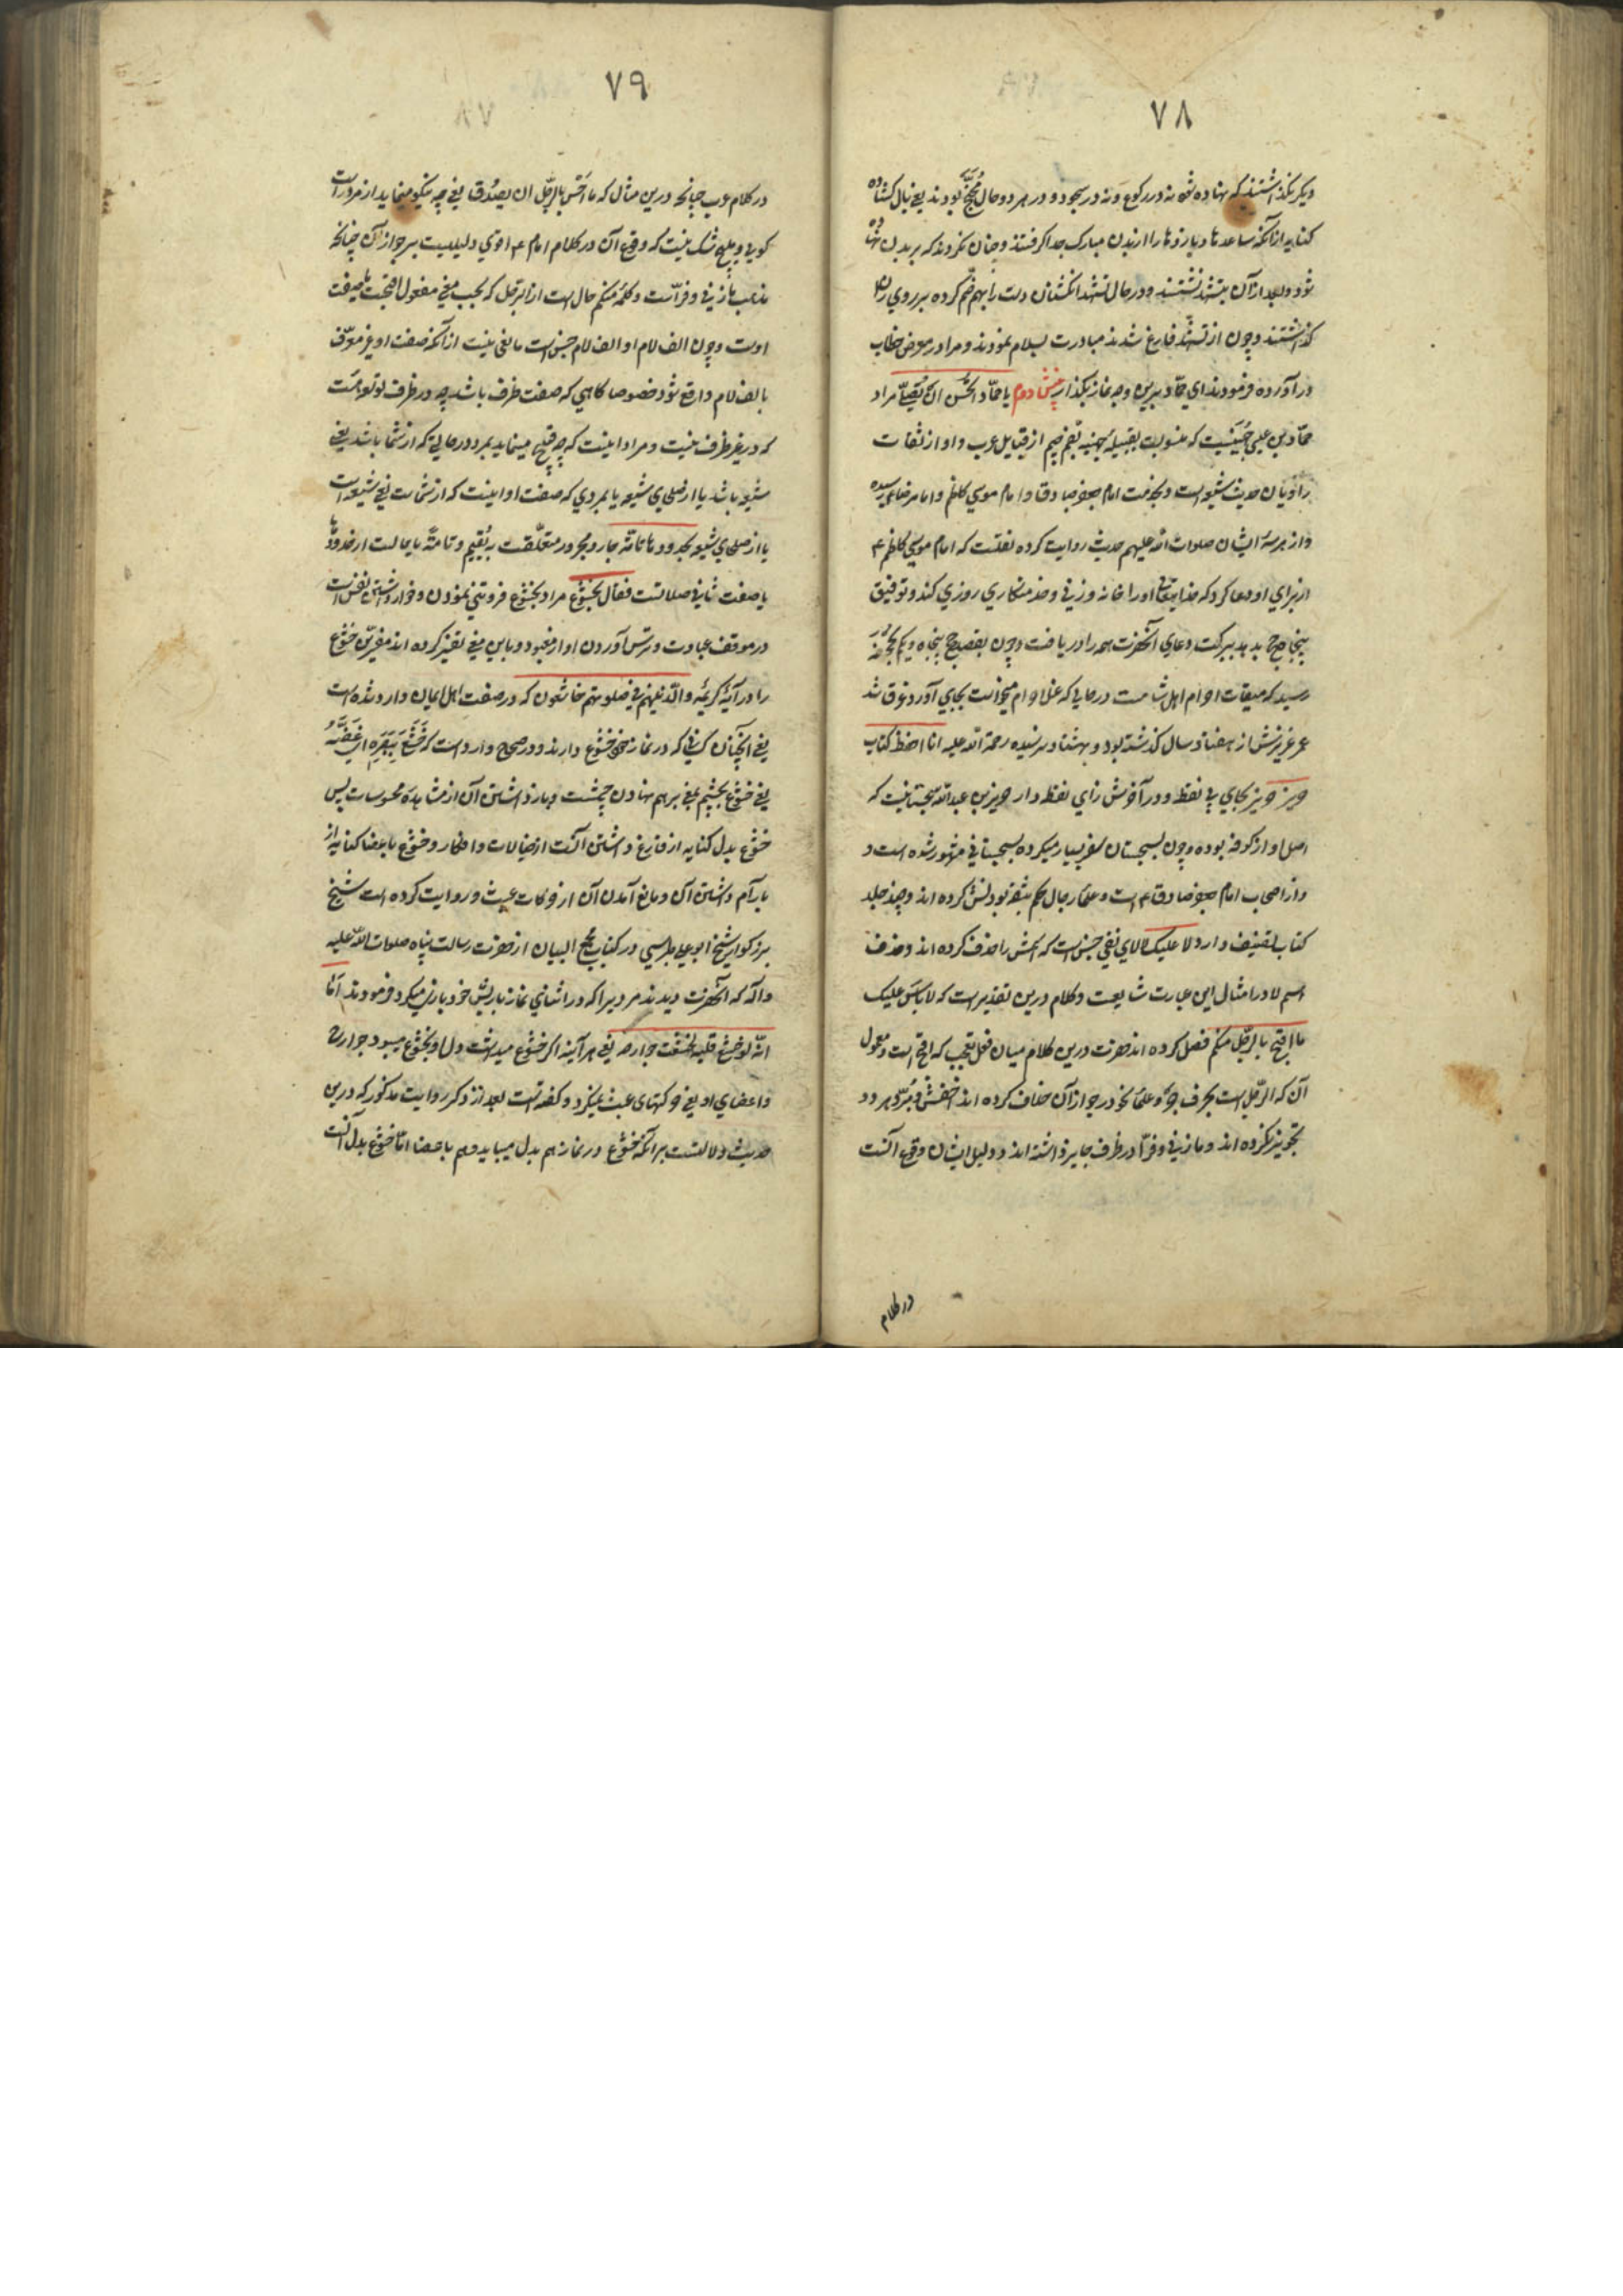 ٧٨
دیکر نکذاشتند که نهاده شود نه در رکوع و نه در سجود و در هر دو حال مُجَنِّح بودند یعنی بال کشاده
کنایه از آنکه ساعدها و بازوها را از بدن مبارک جدا گرفتند و چنان نکردند که بر بدن نهاده
شود و بعد از آن بتشهد نشستند و در حال تشهد انکشتان دست را بهم ضم کرده بر روی ران
کذاشتند و چون از تشهد فارغ شدند مبادرت بسلام نمودند و مرا در معرض خطاب
در آورده فرمودند ای حمّاد برین وجه نماز بکذار بخش دوم یا حمّاد اتحسن ان تصلّی مراد
حمّاد بن عیسی جُهَنیست که منسوبست بقبیلهٔ جهینه بضم جیم از قبایل عرب و او از ثقات
راویان حدیث شیعه است و بخدمت امام جعفر صادق و امام موسی کاظم و امام رضا رسیده
و از هر سهٔ ایشان صلوات الله علیهم حدیث روایت کرده نقلست که امام موسی کاظم ع
از برای او دعا کرد که خدایتعالی او را خانه و زنی و خدمتکاری روزی کند و توفیق
پنجاه حج بدهد ببرکت دعای آنحضرت همه را دریافت و چون بقصد حج پنجاه و یکم بجحفه
رسید که میقات احرام اهل شامست در حالی که غسل احرام میخواست بجای آورد غرق شد
عمر عزیزش از هفتاد سال کذشته بود و بهشتاد نرسیده رحمة الله علیه انا احفظ کتاب
حریز حریز بحای بی نقطه و در آخرش زای نقطه دار حریز بن عبدالله سجستانیست که
اصل او از کوفه بوده و چون بسجستان سفر بسیار میکرده بسجستانی مشهور شده است و
و از اصحاب امام جعفر صادق ع است و علماء رجال حکم بثقه بودنش کرده اند و چند جلد
کتاب تصنیف دارد لا علیک لا لای نفی جنس است که اسمش را حذف کرده اند و حذف
اسم لا در امثال این عبارت شایعست و کلام درین تقدیر است که لا باس علیک
ما اقبح بالرّجل منکم فصل کرده اند حضرت درین کلام میان فعل تعجب که اقبح است و معمول
آن که الرّجل است بحرف جرّ و علماء نحو در جواز آن خلاف کرده اند اخفش و مُبرّد هر دو
تجویز نکرده اند و مازنی و فرّا در ظرف جایز داشته اند و دلیل ایشان وقوع آنست
در کلام
٧٩
در کلام عرب چنانچه درین مثال که ما احسن بالرّجل ان یصدُق یعنی چه نیکو مینماید از مرد راست
کویی و هیچ شک نیست که وقوع آن در کلام امام ع اقوی دلیلیست بر جواز آن چنانکه
مذهب مازنی و فرّاست و کلمهٔ منکم حال است از الرجل که بحسب معنی مفعول اقبحت یا صفت
اوست و چون الف لام او الف لام جنس است مانعی نیست از آنکه صفت او غیر معرّف
بالف لام واقع شود خصوصا کاهی که صفت ظرف باشد چه در ظرف توسّعاتست
که در غیر ظرف نیست و مراد اینست که چه قبیح مینماید بمرد در حالی که از شما باشد یعنی
شیعه باشد یا از صلحای شیعه یا بمردی که صفت او اینست که از شماست یعنی شیعه است
یا از صلحای شیعه بحدودها تامّة جار و مجرور متعلّقست به یُقیم و تامّة یا حالست از حدودها
یا صفت ثانی صلاتست فقال بخشوع مراد بخشوع فروتنی نمودن و خوار داشتن نفس است
در موقف عبادت و ترس آوردن او از معبود و باین معنی تفسیر کرده اند مفسرین خشوع
را در آیهٔ کریمهٔ والّذین هم فی صلوتهم خاشعون که در صفت اهل ایمان وارد شده است
یعنی آنچنان کسانی که در نماز خود خشوع دارند و در صحاح وارد است که خَشَعَ بِبَصَرِهِ ای غَضَّهُ
یعنی خشوع بچشم بمعنی بر هم نهادن چشمست و باز داشتن آن از مشاهدهٔ محسوسات پس
خشوع بدل کنایه از فارغ داشتن آنست از خیالات و افکار و خشوع باعضا کنایه از
بآرام داشتن آن و مانع آمدن آن از حرکات عبث و روایت کرده است شیخ
بزرکوار شیخ ابو علی طبرسی در کتاب مجمع البیان از حضرت رسالت پناه صلوات الله علیه
و آله که آنحضرت دیدند مردیرا که در اثنای نماز با ریش خود بازی میکرد فرمودند امّا
انّه لو خشع قلبه لخشعت جوارحه یعنی هر آینه اکر خشوع میداشت دل او بخشوع میبود جوارح
و اعضای او یعنی حرکتهای عبث نمیکرد و کفته است بعد از ذکر روایت مذکور که درین
حدیث دلالتست بر آنکه خشوع در نماز هم بدل میباید و هم باعضا امّا خشوع بدل آنست